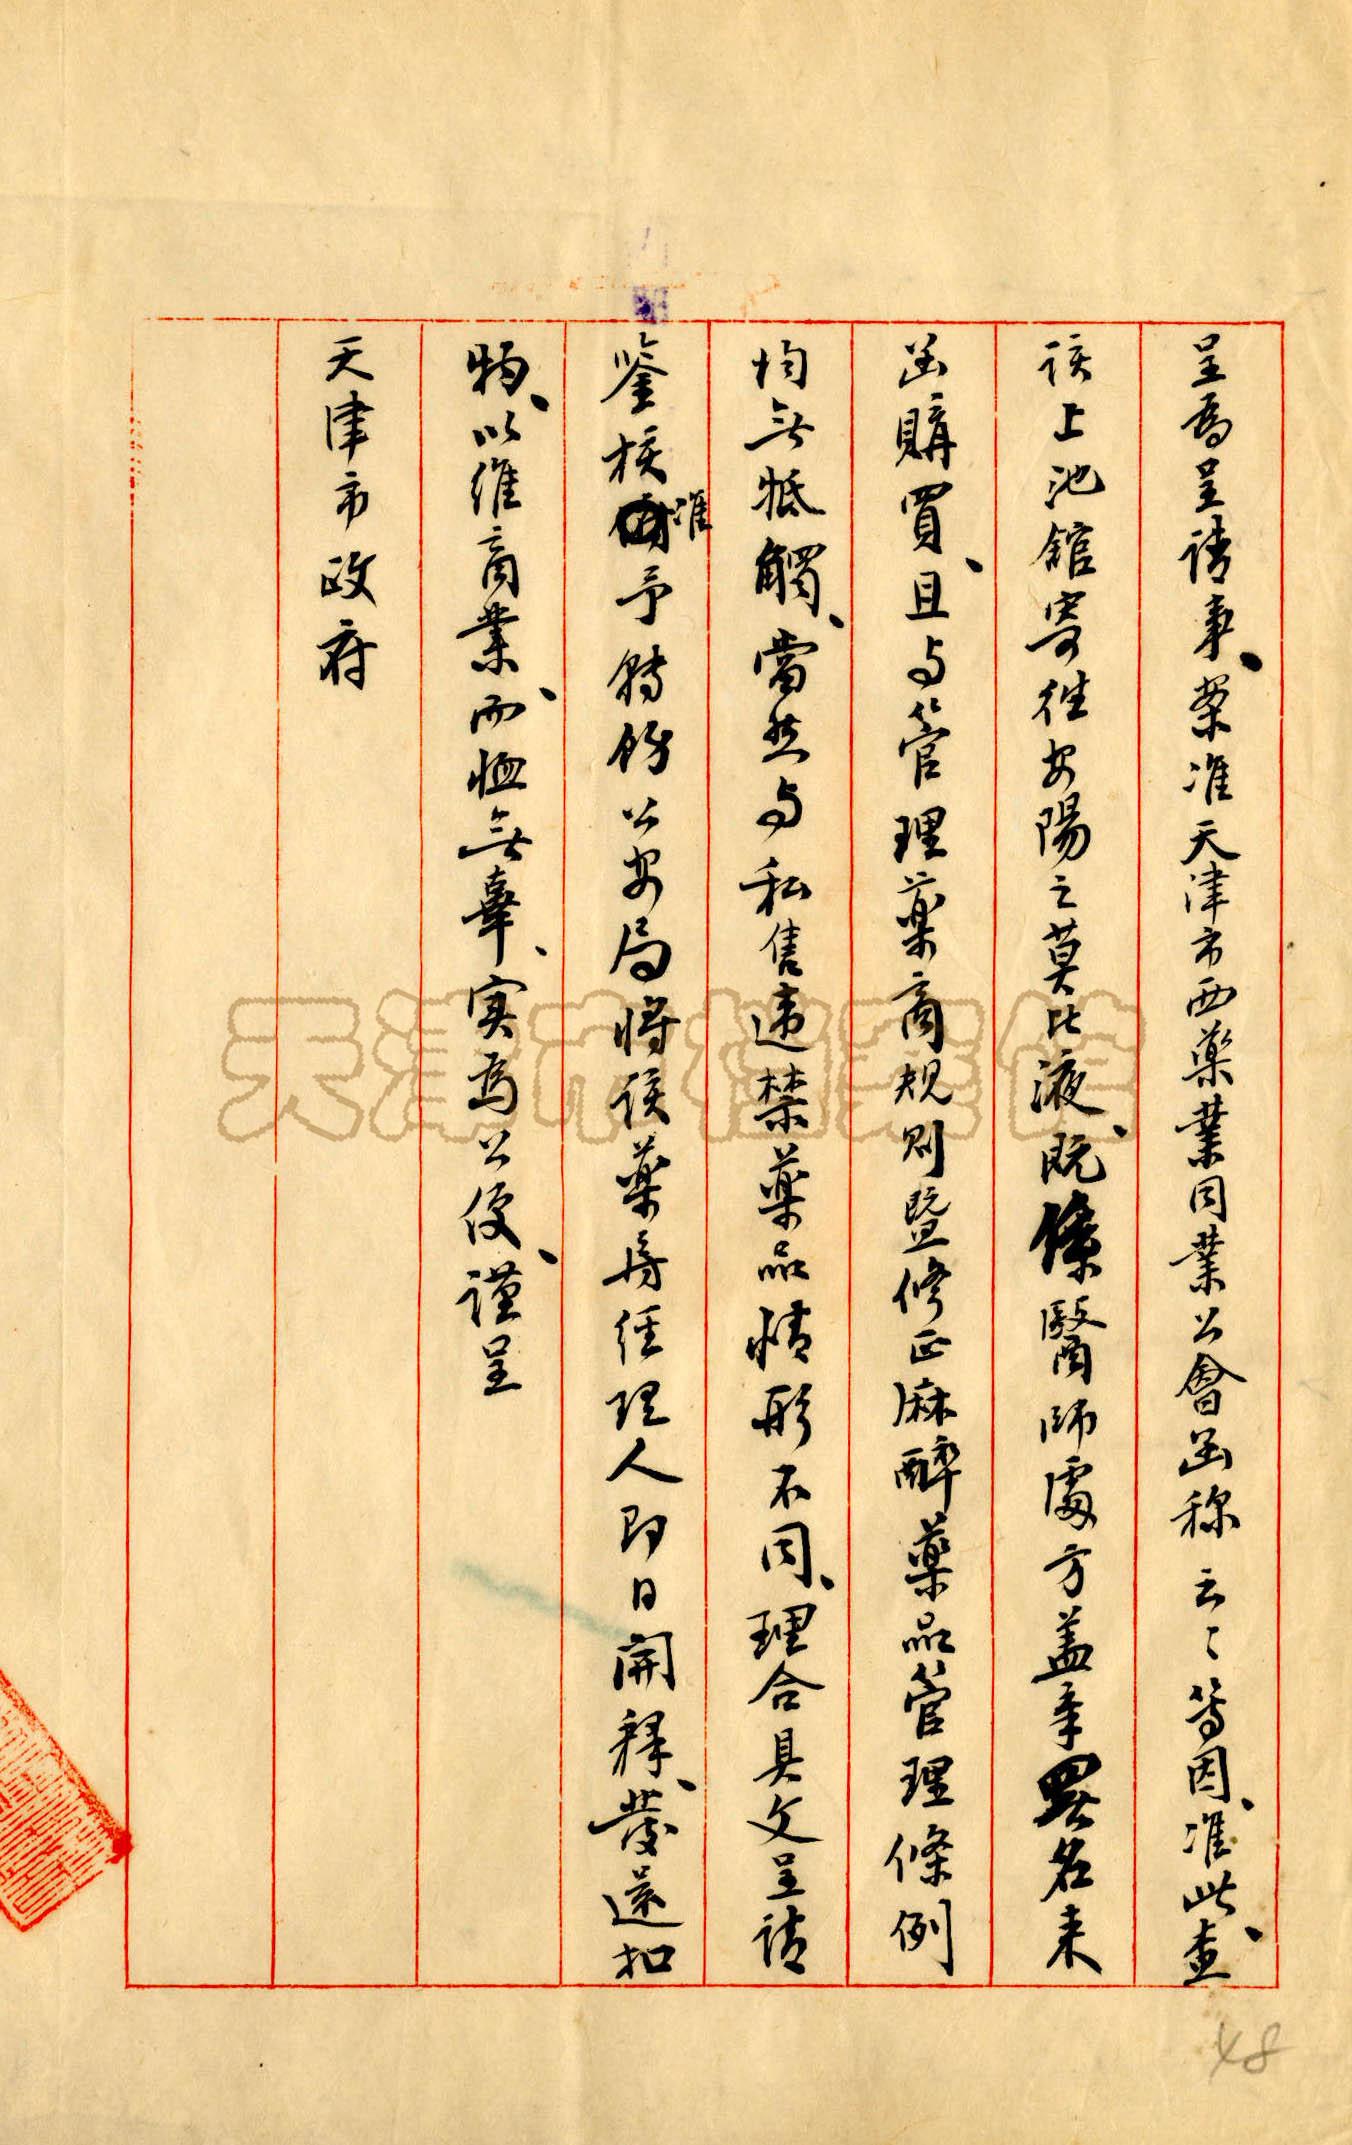 呈為呈請事、案准天津市西藥業同業公會函称云々等因、准此、查
該上池館寄往安陽之莫比液、既係醫師處方蓋章署名来
函購買、且与管理藥商規則暨修正麻醉藥品管理條例
均无牴觸、當然与私售违禁藥品情形不同、理合具文呈請
鉴核准予轉飭公安局將該藥房经理人即日開释、發還扣
物、以維商業、而恤无辜、实為公便、謹呈
天津市政府
天津市档案馆
48